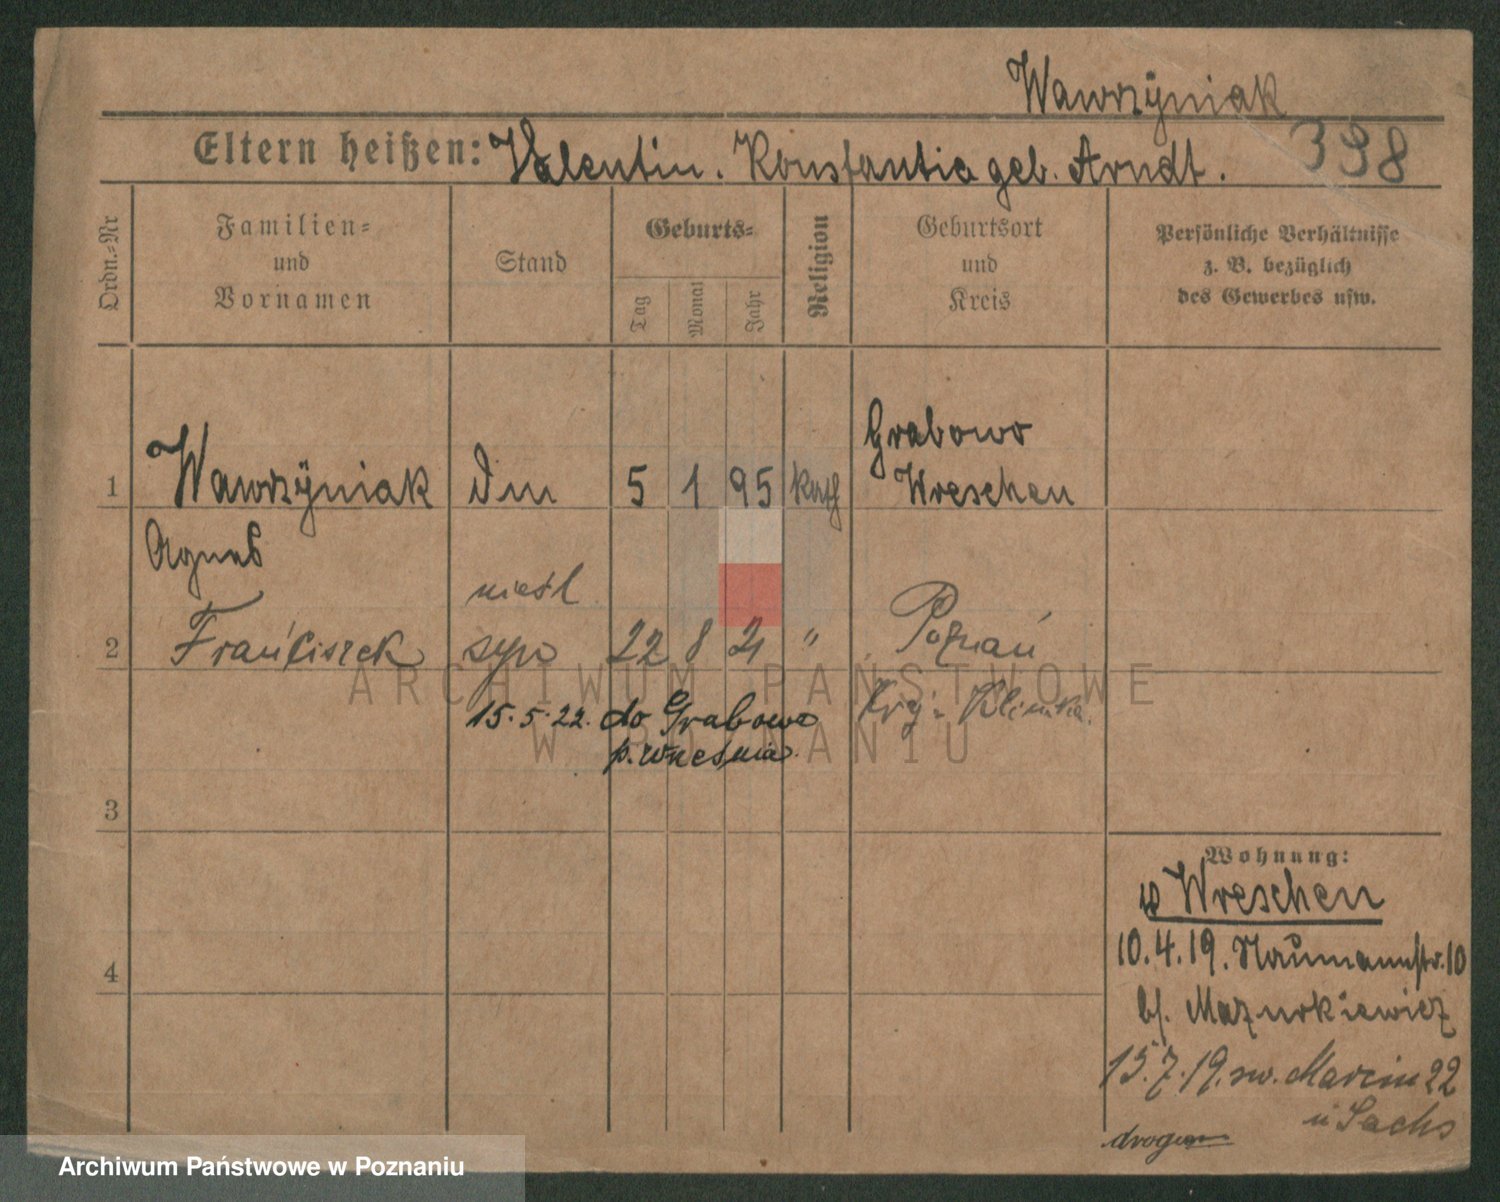 Wawrzÿniak
Eltern heißen: Valentin. Konstantia geb. Arndt. 398
Ordn.-Nr
Familien-
und
Vornamen
Stand
Geburts-
Tag
Monat
Jahr
Religion
Geburtsort
und
Kreis
Persönliche Verhältnisse
z. B. bezüglich
des Gewerbes usw.
1 Wawrzÿniak 5 1 95 kath Grabowo
Wreschen
Agnes
nieśl.
2 Franciszek syn 22 8 21 " Poznań
15.5.22. do Grabowa
p. Września.
3
4
Wohnung:
Wreschen
10.4.19. Naumannstr. 10
bf. Mazurkiewicz
15.7.19. sw. Marcin 22
u Sachs
ARCHIWUM PAŃSTWOWE
W POZNANIU
Archiwum Państwowe w Poznaniu